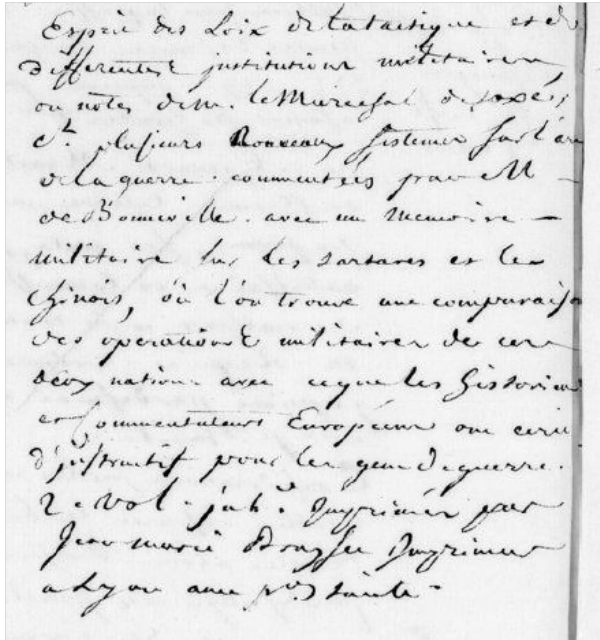 Esprit des Loix de la tactique et de
differentes institutions militaires
ou notes de m. le Marechal de Saxe,
et plusieurs Nouveaux sistemes sur l'art
de la guerre commentées par M
de Bonneville. avec un memoire
militaire sur les tartares et les
Chinois, où l'on trouve une comparaison
des operations militaires de ces
deux nations avec ce que les historiens
et Commentateurs Européens ont ecrit
d'instructif pour les gens de guerre.
2. vol. in 4.o Imprimés par
Jean marie Bruyset Imprimeur
a Lyon